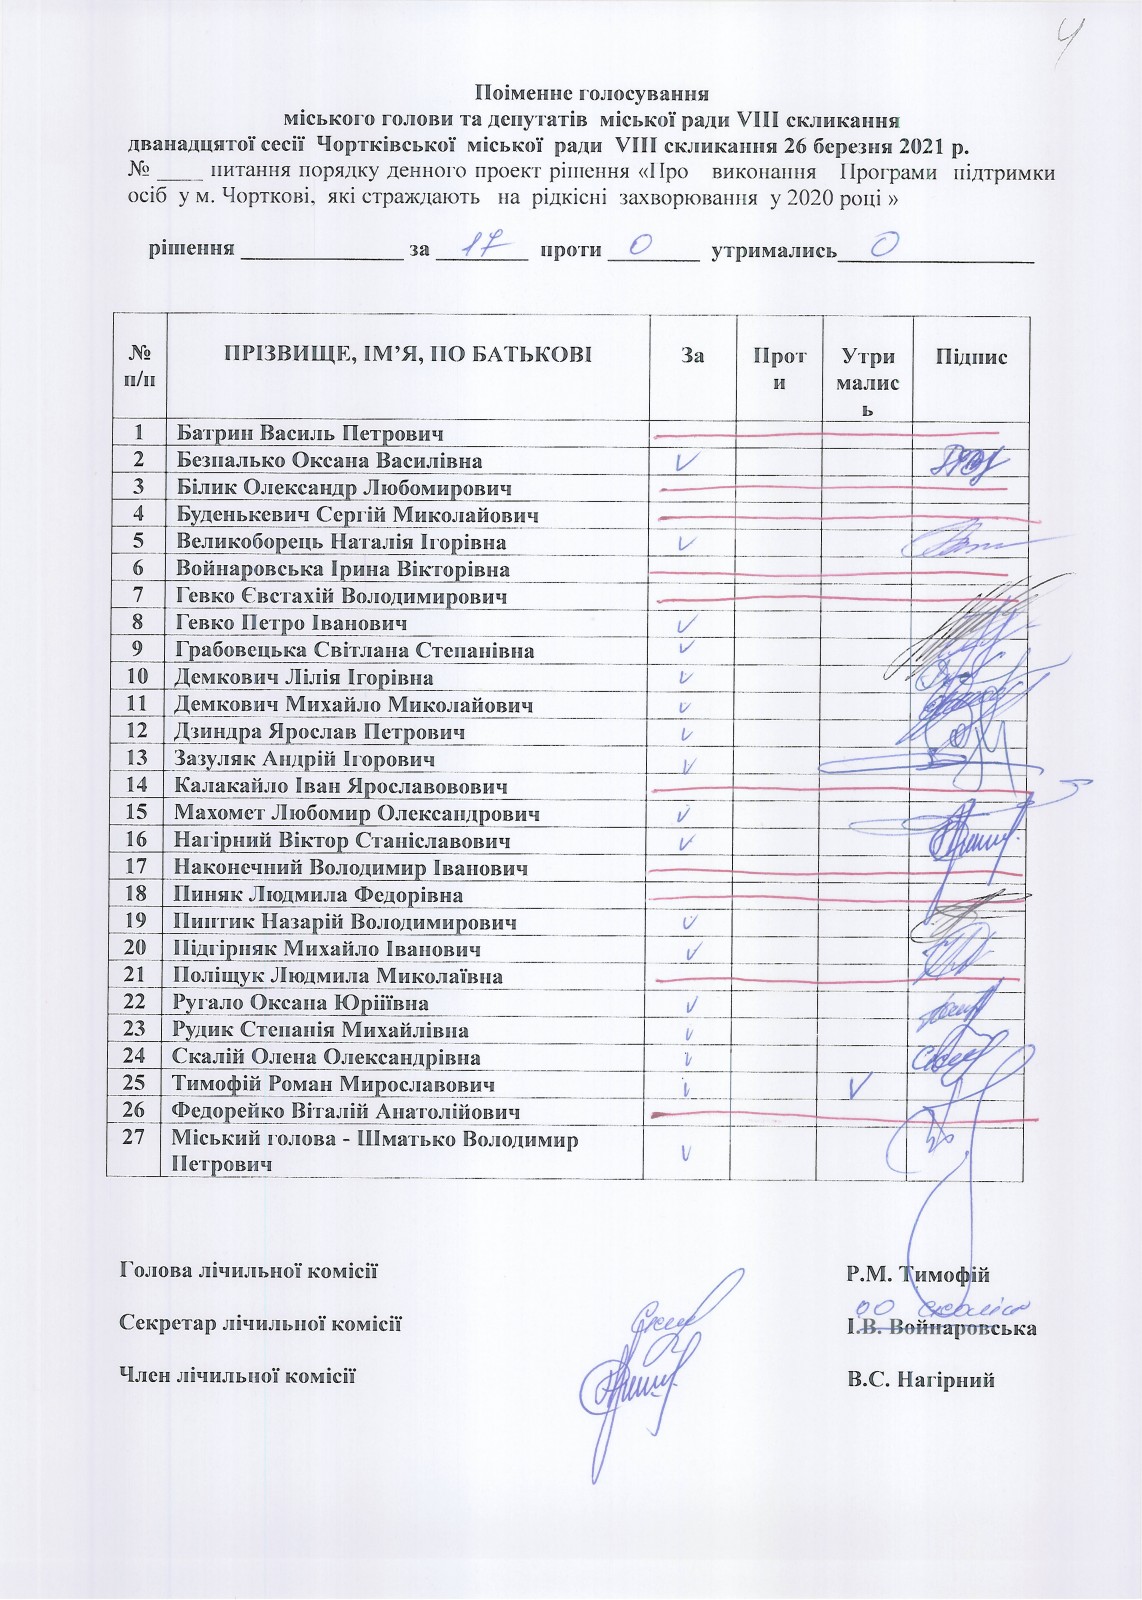 Ч
Поіменне голосування
міського голови та депутатів міської ради VІІІ скликання
дванадцятої сесії Чортківської міської ради VІІІ скликання 26 березня 2021 р.
№ ____ питання порядку денного проект рішення «Про виконання Програми підтримки
осіб у м. Чорткові, які страждають на рідкісні захворювання у 2020 році »
рішення ______________ за 17 проти 0 утримались 0
№ п/п ПРІЗВИЩЕ, ІМ’Я, ПО БАТЬКОВІ За Проти Утримались Підпис
1 Батрин Василь Петрович
2 Безпалько Оксана Василівна
3 Білик Олександр Любомирович
4 Буденькевич Сергій Миколайович
5 Великоборець Наталія Ігорівна
6 Войнаровська Ірина Вікторівна
7 Гевко Євстахій Володимирович
8 Гевко Петро Іванович
9 Грабовецька Світлана Степанівна
10 Демкович Лілія Ігорівна
11 Демкович Михайло Миколайович
12 Дзиндра Ярослав Петрович
13 Зазуляк Андрій Ігорович
14 Калакайло Іван Ярославовович
15 Махомет Любомир Олександрович
16 Нагірний Віктор Станіславович
17 Наконечний Володимир Іванович
18 Пиняк Людмила Федорівна
19 Пиптик Назарій Володимирович
20 Підгірняк Михайло Іванович
21 Поліщук Людмила Миколаївна
22 Ругало Оксана Юріїївна
23 Рудик Степанія Михайлівна
24 Скалій Олена Олександрівна
25 Тимофій Роман Мирославович
26 Федорейко Віталій Анатолійович
27 Міський голова - Шматько Володимир
Петрович
Голова лічильної комісії Р.М. Тимофій
ОО Скалій
Секретар лічильної комісії І.В. Войнаровська
Член лічильної комісії В.С. Нагірний